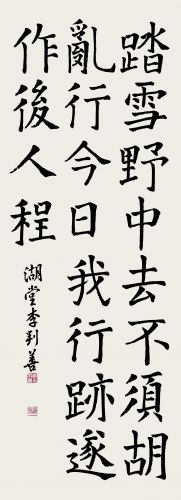 踏雪野中去不須胡
亂行今日我行跡遂
作後人程
湖堂李利善